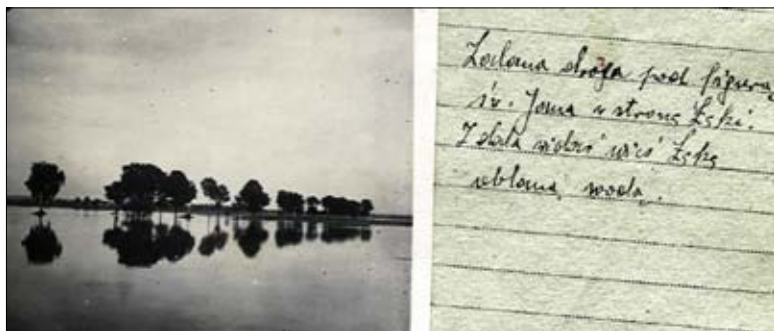 Zalana droga pod figurą
św. Jana w stronę Łęki.
Z dala widać wieś Łękę
oblaną wodą.